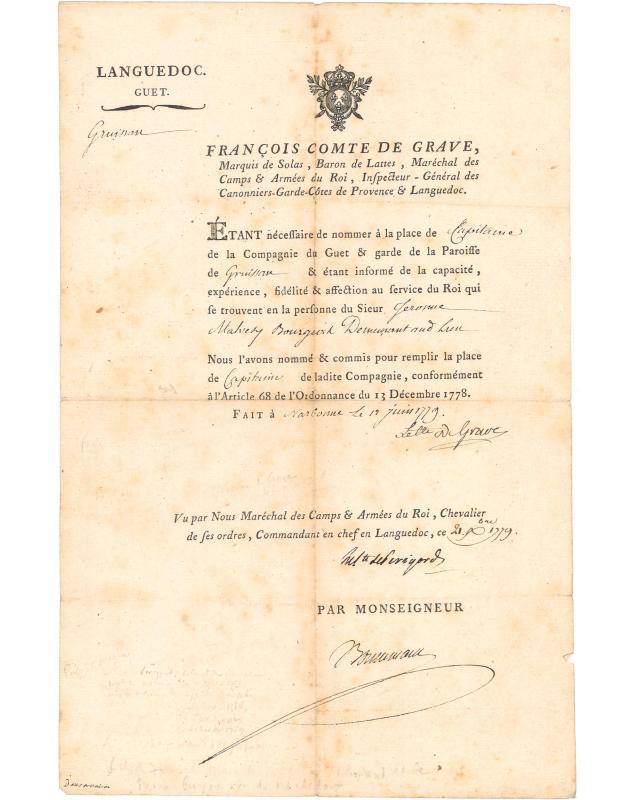 LANGUEDOC.
GUET.
Gruissan
FRANÇOIS COMTE DE GRAVE,
Marquis de Solas, Baron de Lattes, Maréchal des
Camps & Armées du Roi, Inſpecteur-Général des
Canonniers-Garde-Côtes de Provence & Languedoc.
ÉTANT néceſſaire de nommer à la place de Capitaine
de la Compagnie du Guet & garde de la Paroiſſe
de Gruissan & étant informé de la capacité,
expérience, fidélité & affection au ſervice du Roi qui
ſe trouvent en la perſonne du Sieur Jerosme
Bourgeois Demeurant aud Lieu
Nous l'avons nommé & commis pour remplir la place
de Capitaine de ladite Compagnie, conformément
à l'Article 68 de l'Ordonnance du 13 Décembre 1778.
FAIT à Narbonne Le juin 1779.
Le Cte De Grave
Vu par Nous Maréchal des Camps & Armées du Roi, Chevalier
de ſes ordres, Commandant en chef en Languedoc, ce 21 Xbre 1779.
de Perigord
PAR MONSEIGNEUR